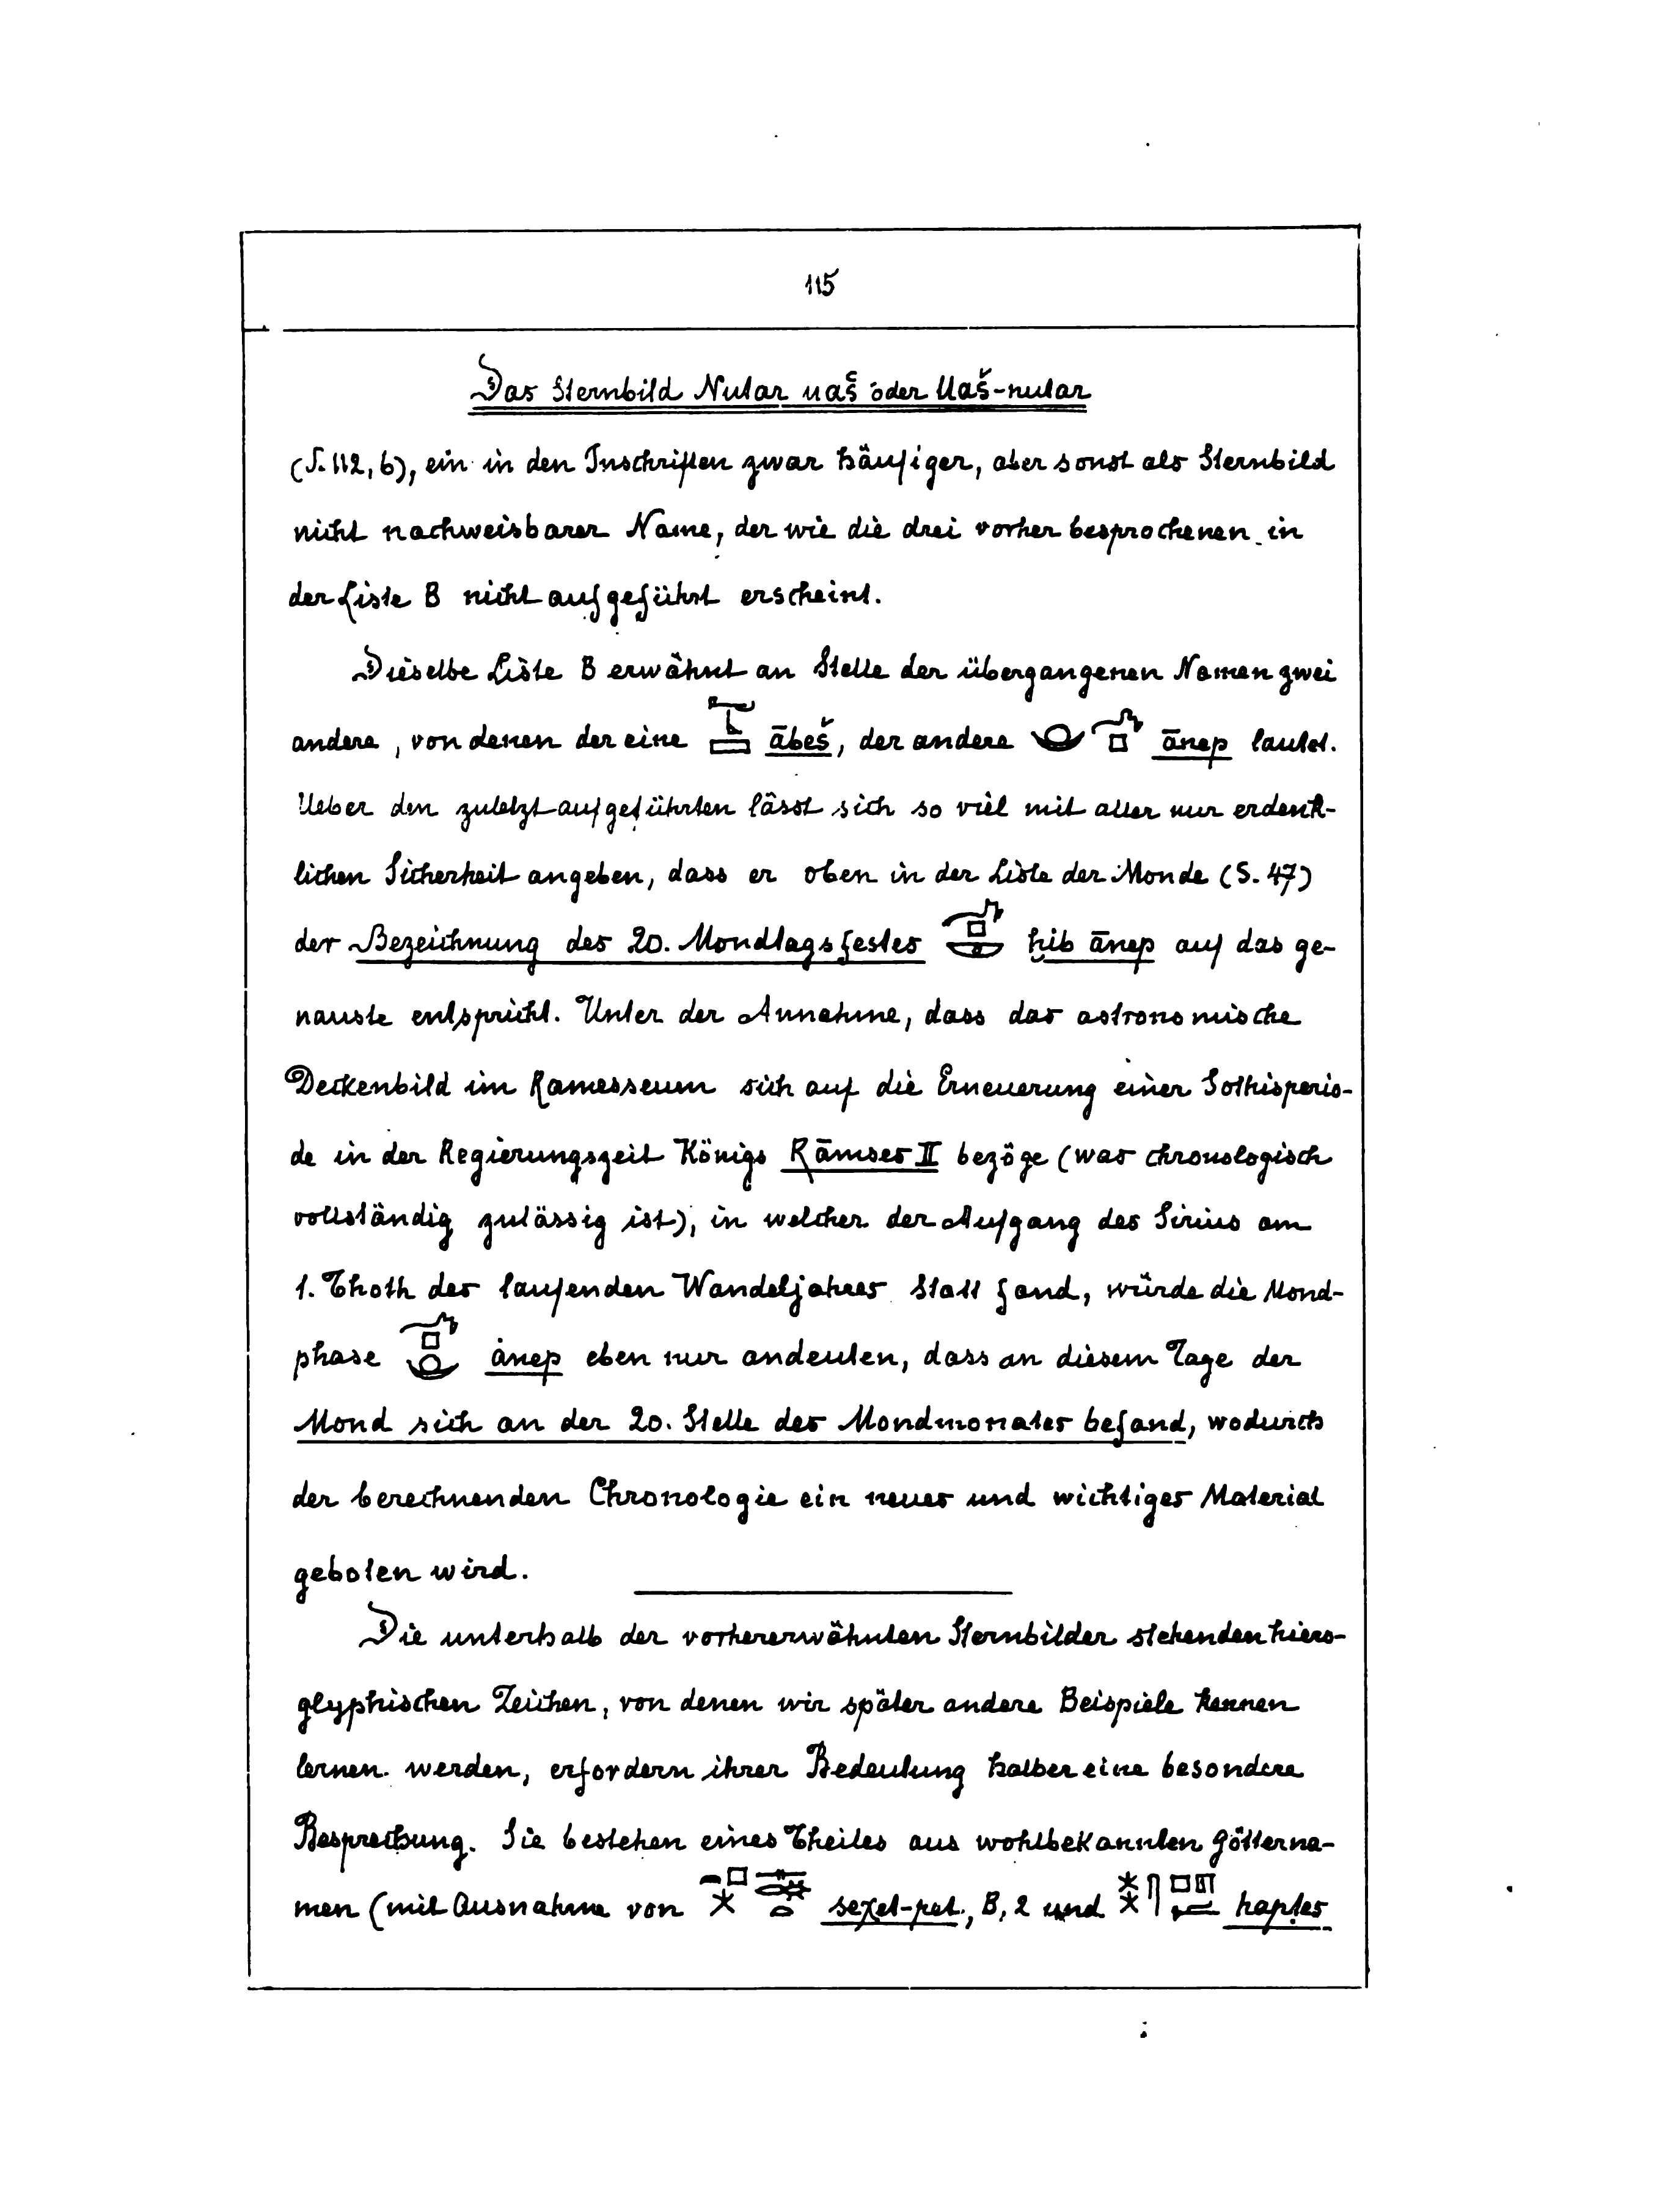 115
Das Sternbild Nutar uaš oder Uaš-nutar
(S. 112, 6), ein in den Inschriften zwar häufiger, aber sonst als Sternbild
nicht nachweisbarer Name, der wie die drei vorher besprochenen in
der Liste B nicht aufgeführt erscheint.
Dieselbe Liste B erwähnt an Stelle der übergangenen Namen zwei
andere, von denen der eine ābeš, der andere ānep lautet.
Ueber den zuletzt aufgeführten lässt sich so viel mit aller nur erdenk-
lichen Sicherheit angeben, dass er oben in der Liste der Monde (S. 47)
der Bezeichnung des 20. Mondtagsfestes ḥib ānep auf das ge-
nauste entspricht. Unter der Annahme, dass das astronomische
Deckenbild im Ramesseum sich auf die Erneuerung einer Sothisperio-
de in der Regierungszeit Königs Rāmses II bezöge (was chronologisch
vollständig zulässig ist), in welcher der Aufgang des Sirius am
1. Thoth des laufenden Wandeljahres Statt fand, würde die Mond-
phase ȧnep eben nur andeuten, dass an diesem Tage der
Mond sich an der 20. Stelle des Mondmonates befand, wodurch
der berechnenden Chronologie ein neues und wichtiges Material
geboten wird.
Die unterhalb der vorhererwähnten Sternbilder stehenden hiero-
glyphischen Zeichen, von denen wir später andere Beispiele kennen
lernen werden, erfordern ihrer Bedeutung halber eine besondere
Besprechung. Sie bestehen eines Theiles aus wohlbekannten Götterna-
men (mit Ausnahme von seχet-pet, B, 2 und hapṭes